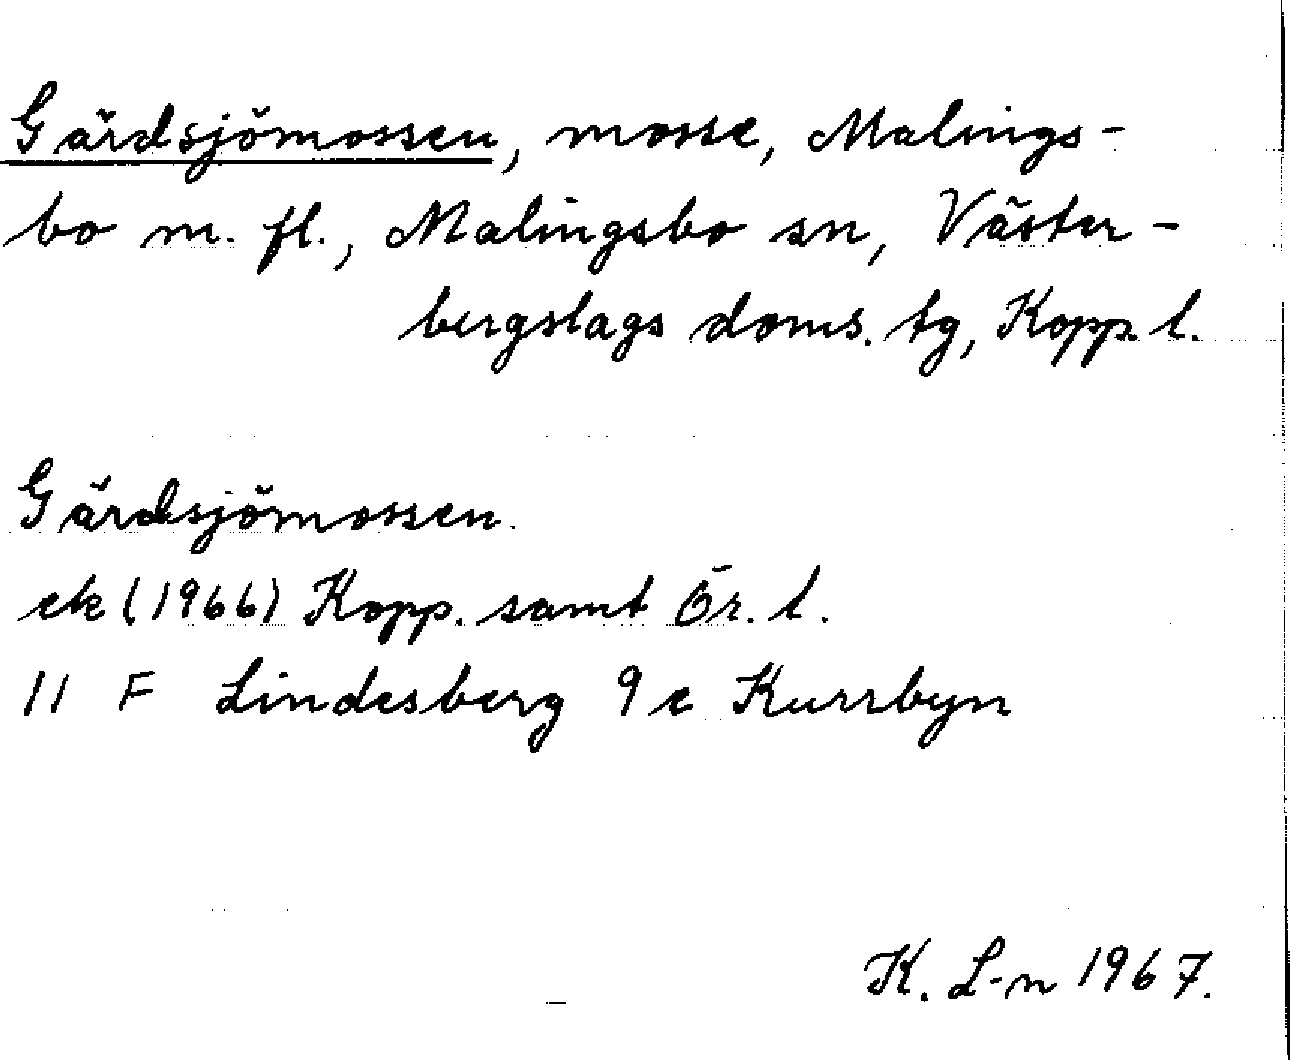 Gärdsjömossen, mosse, Malings-
bo m. fl., Malingsbo sn, Väster-
bergslags doms. tg, Kopp. l.
Gärdsjömossen.
ek (1966) Kopp. samt Ör. l.
11 F Lindesberg 9 e Kurrbyn
K. L-n 1967.